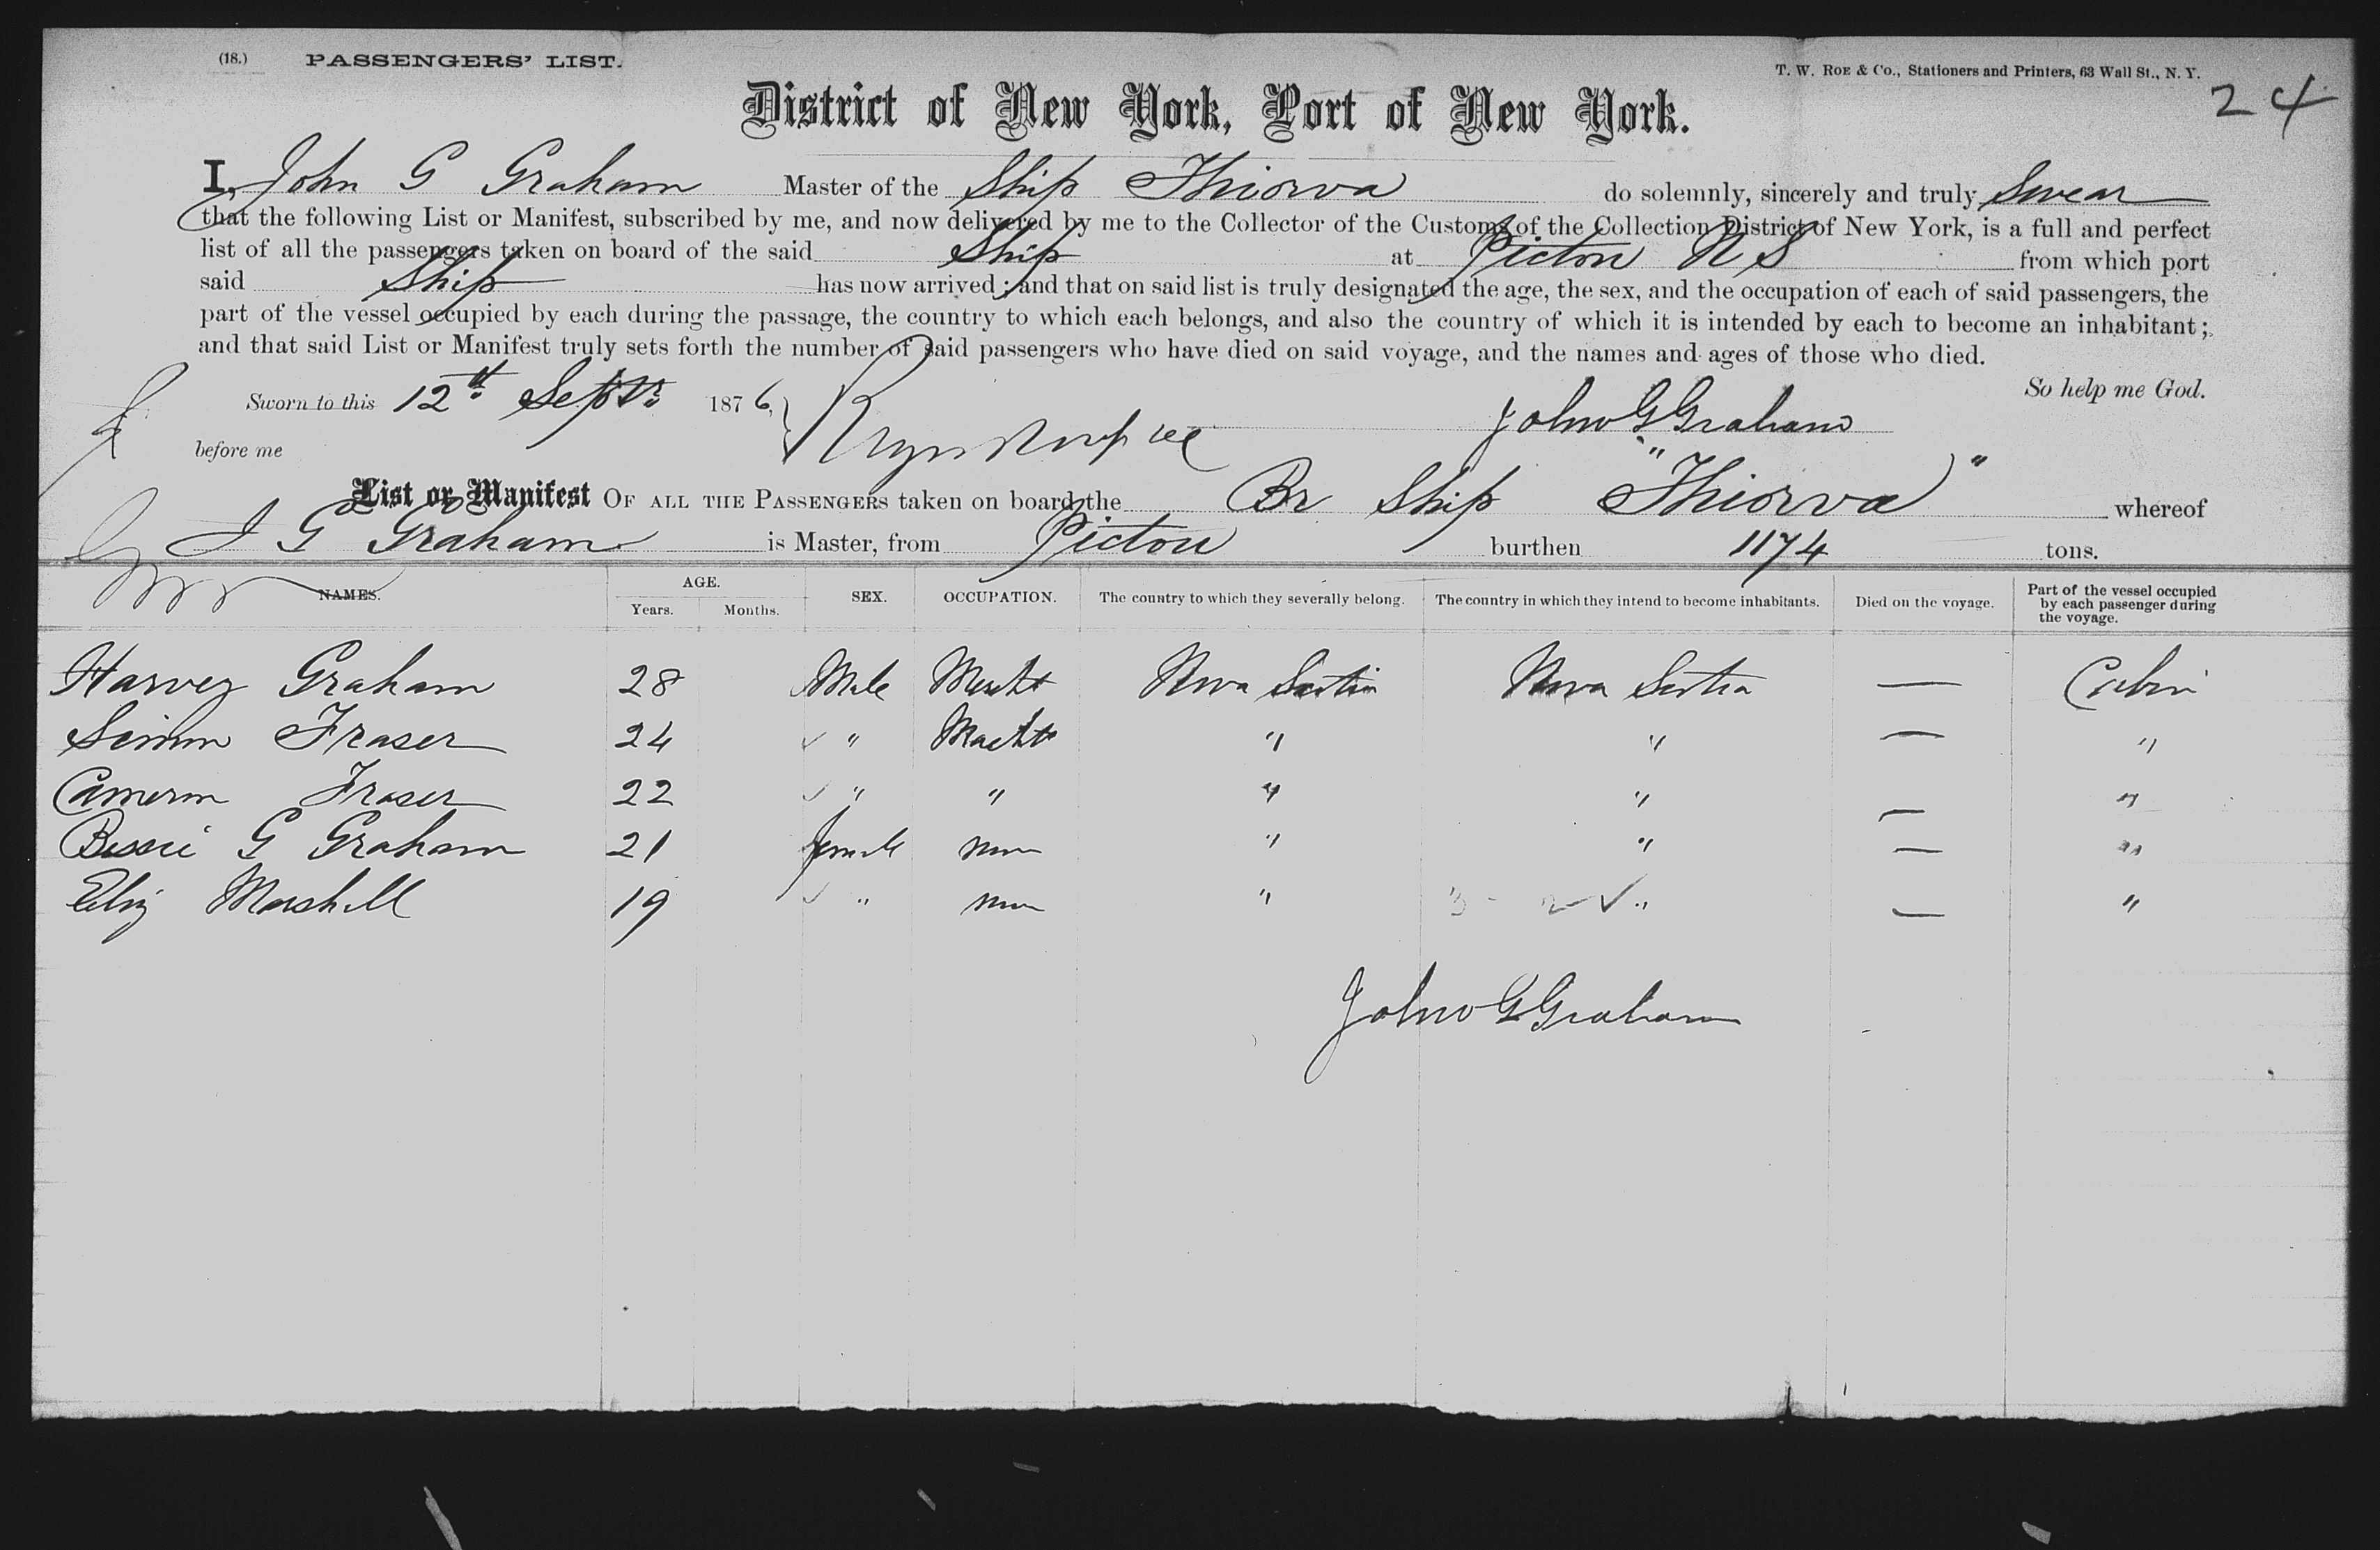 (18.) PASSENGERS' LIST. T. W. ROE & Co., Stationers and Printers, 63 Wall St., N. Y.
24
District of New York, Port of New York.
I, John G Graham Master of the Ship Thiorva do solemnly, sincerely and truly Swear
that the following List or Manifest, subscribed by me, and now delivered by me to the Collector of the Customs of the Collection District of New York, is a full and perfect
list of all the passengers taken on board of the said Ship at Pictou N S from which port
said Ship has now arrived; and that on said list is truly designated the age, the sex, and the occupation of each of said passengers, the
part of the vessel occupied by each during the passage, the country to which each belongs, and also the country of which it is intended by each to become an inhabitant;
and that said List or Manifest truly sets forth the number of said passengers who have died on said voyage, and the names and ages of those who died.
So help me God.
Sworn to this 12th Sept 1876, John G Graham
before me
List or Manifest OF ALL THE PASSENGERS taken on board the Br Ship "Thiorva" whereof
J G Graham is Master, from Pictou burthen 1174 tons.
NAMES. AGE. Years. Months. SEX. OCCUPATION. The country to which they severally belong. The country in which they intend to become inhabitants. Died on the voyage. Part of the vessel occupied by each passenger during the voyage.
Harvey Graham 28 Male Mercht Nova Scotia Nova Scotia — Cabin
Simon Fraser 24 " " " — "
Cameron Fraser 22 " " " " — "
Bessie G Graham 21 female " " — "
Eliz Marshall 19 " " " — "
John G Graham